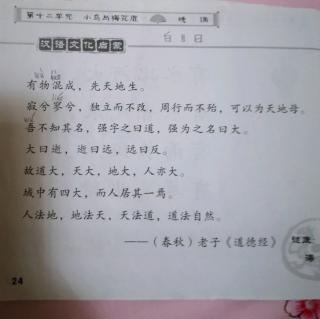 第十二单元 小鸟与梅花鹿 晚诵
8月 日
汉语文化启蒙
有物混成，先天地生。
寂兮寥兮，独立而不改，周行而不殆，可以为天地母。
吾不知其名，强字之曰道，强为之名曰大。
大曰逝，逝曰远，远曰反。
故道大，天大，地大，人亦大。
域中有四大，而人居其一焉。
人法地，地法天，天法道，道法自然。
——（春秋）老子《道德经》
24